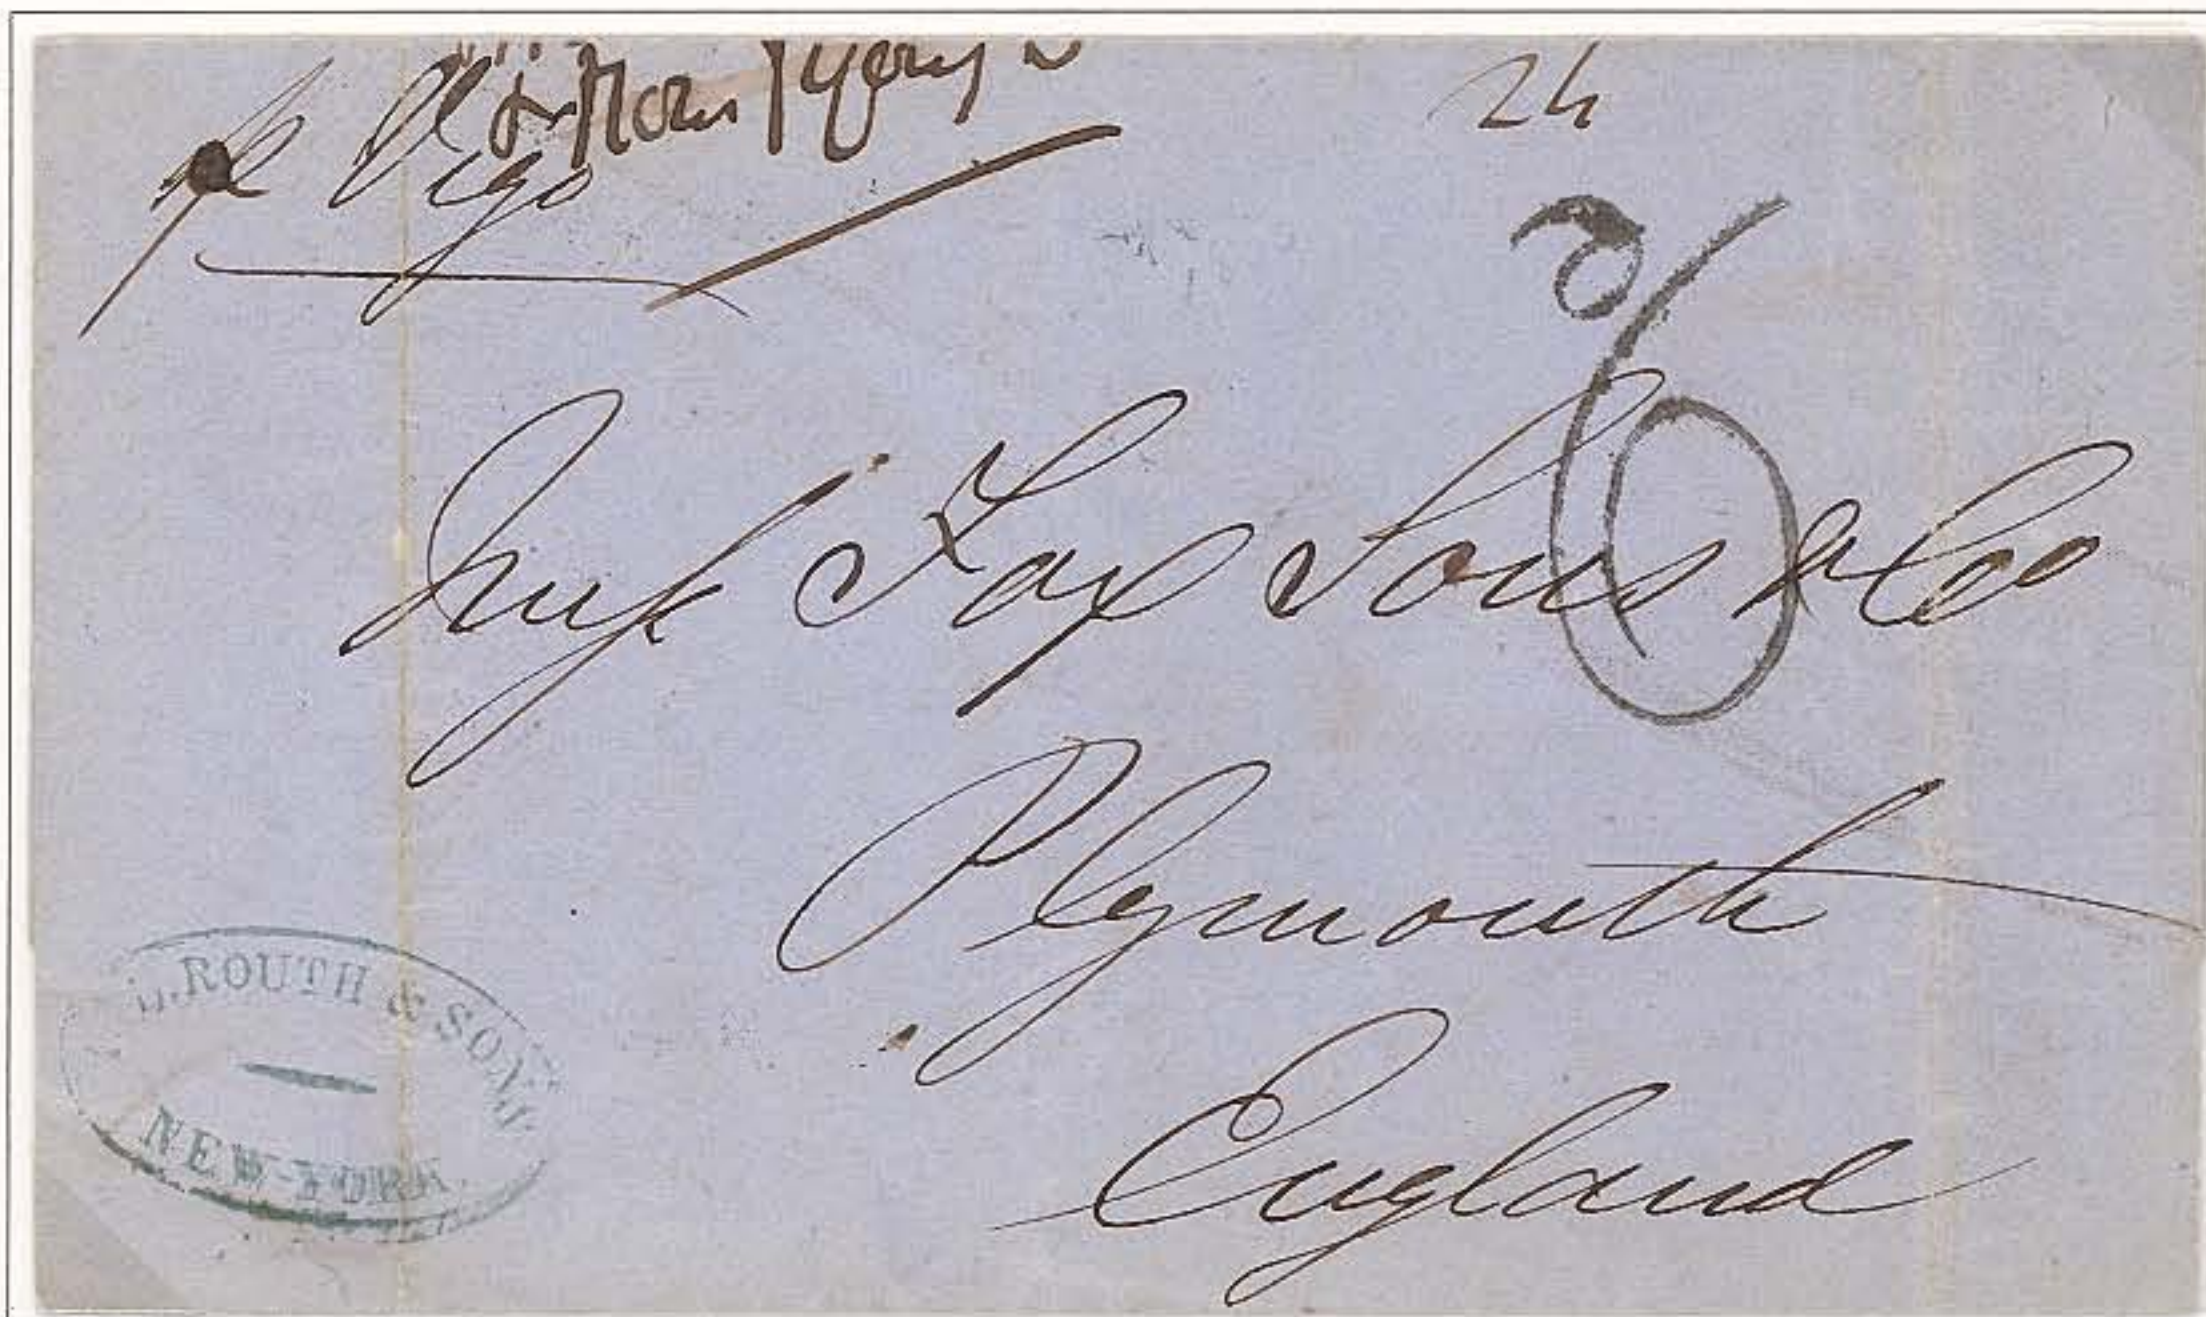 24
p Vigo
Messrs Fox Sons & Co
Plymouth
England
6
L. ROUTH & SONS
NEW-YORK